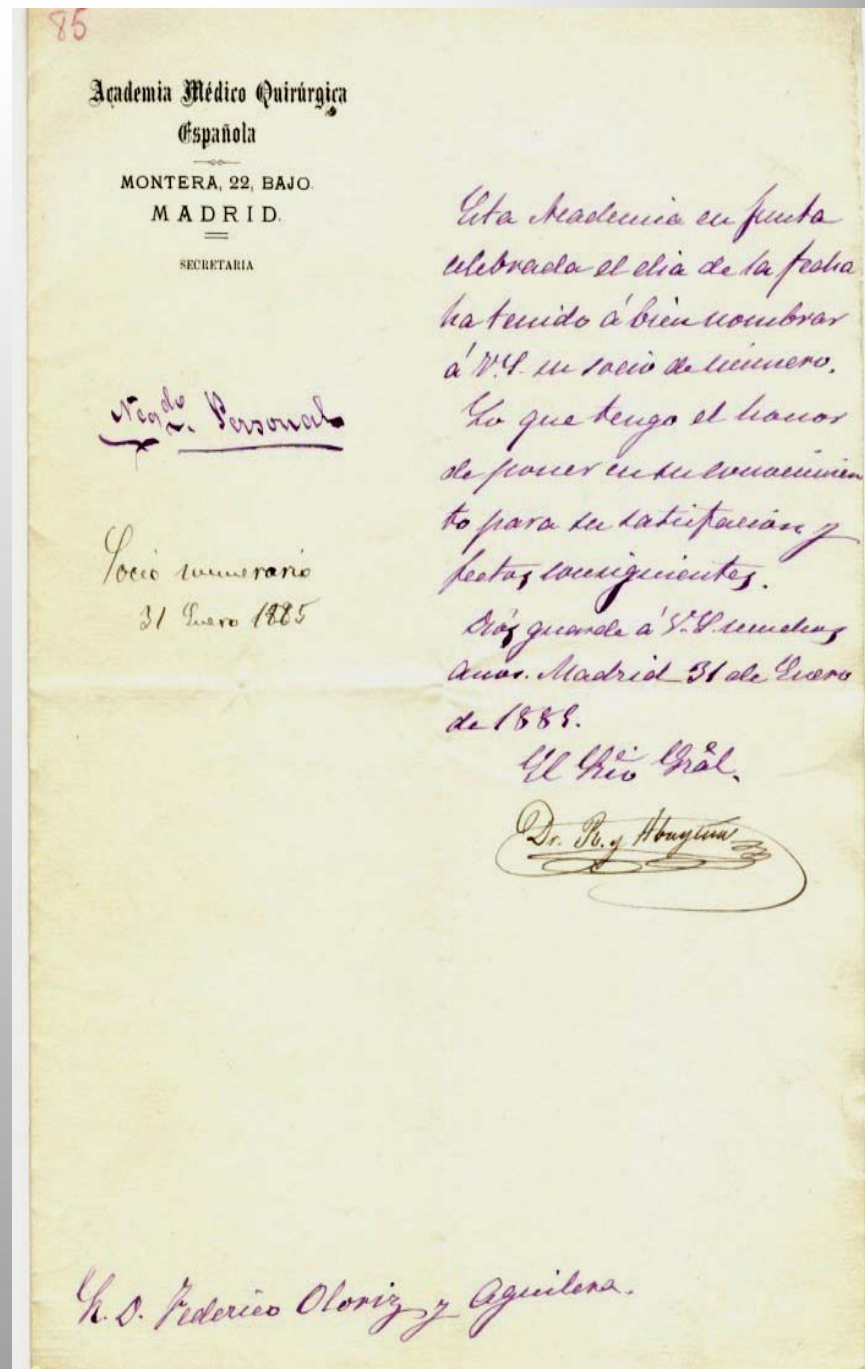 85
Academia Médico Quirúrgica
Española
MONTERA, 22, BAJO.
MADRID.
SECRETARIA
Negdo. Personal
Socio numerario
31 Enero 1885
Esta Academia en junta
celebrada el dia de la fecha
ha tenido á bien nombrar
á V.S. su socio de número.
Lo que tengo el honor
de poner en su conocimien
to para su satisfacion y
fectos consiguientes.
Dios guarde á V.S. muchos
años. Madrid 31 de Enero
de 1885.
El Srio Gral.
Dr. R. y
S. D. Federico Oloriz y Aguilera.